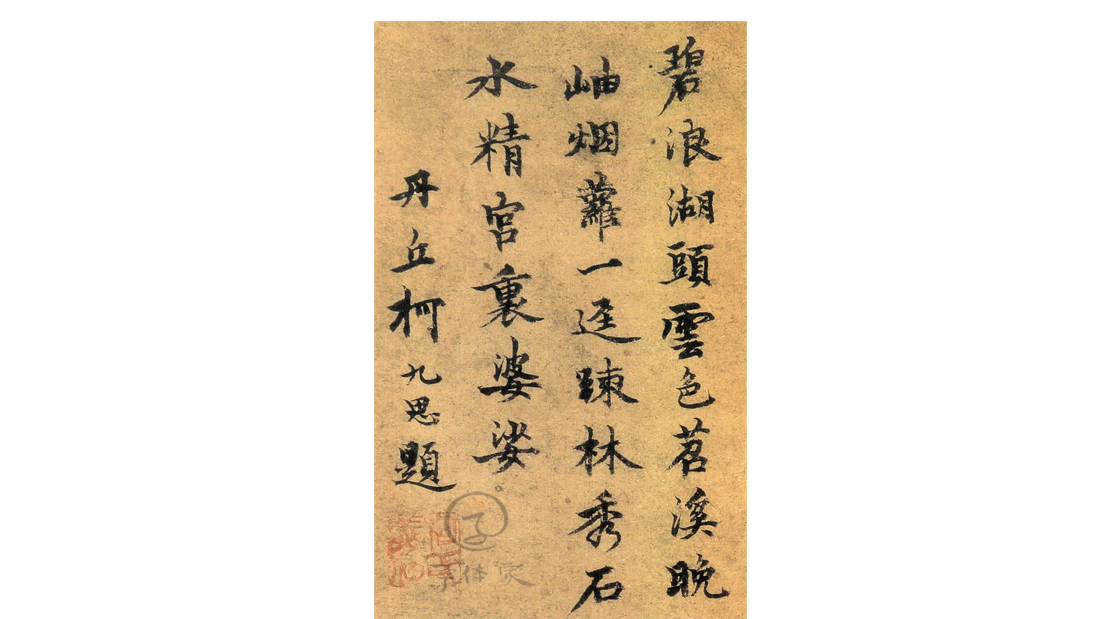 碧浪湖頭雲色苕溪晚
岫烟蘿一逕踈林秀石
水精宮裏婆娑
丹丘柯九思題
字体家